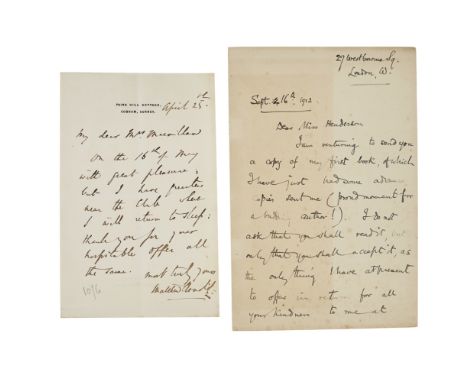 PAINS HILL COTTAGE,
COBHAM, SURREY.
April 25th
My dear Mrs Macmillan
On the 16th of May
with great pleasure;
but I have
near the Club where
I will return to sleep;
thank you for your
hospitable offer all
the same. most truly yours
Matthew Arnold.
10/6
27 Westbourne Sq.
London, W.
Sept. 16th, 1912
Dear Miss Henderson
I am venturing to send you
a copy of my first book of which
I have just had some advance
copies sent me (proud moment for
a budding author!). I do not
ask that you shall read it, but
only that you shall accept it, as
the only thing I have at present
to offer in return for all
your kindness to me at